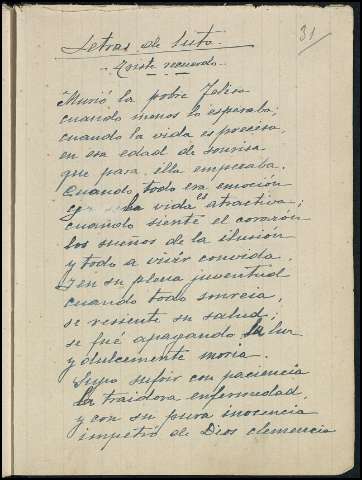 31
Letras de luto.
- Triste recuerdo. -
Murió la pobre Felisa
cuando menos lo esperaba;
cuando la vida es precisa,
en esa edad de sonrisa
que para ella empezaba.
Cuando todo era emoción
la vida es atractiva;
cuando siente el corazón
los sueños de la ilusión
y todo a vivir convida.
Y en su plena juventud
cuando todo sonreia,
se resiente su salud;
se fué apagando la luz
y dulcemente moria.
Supo sufrir con paciencia
la traidora enfermedad,
y con su pura inocencia
impetró de Dios clemencia